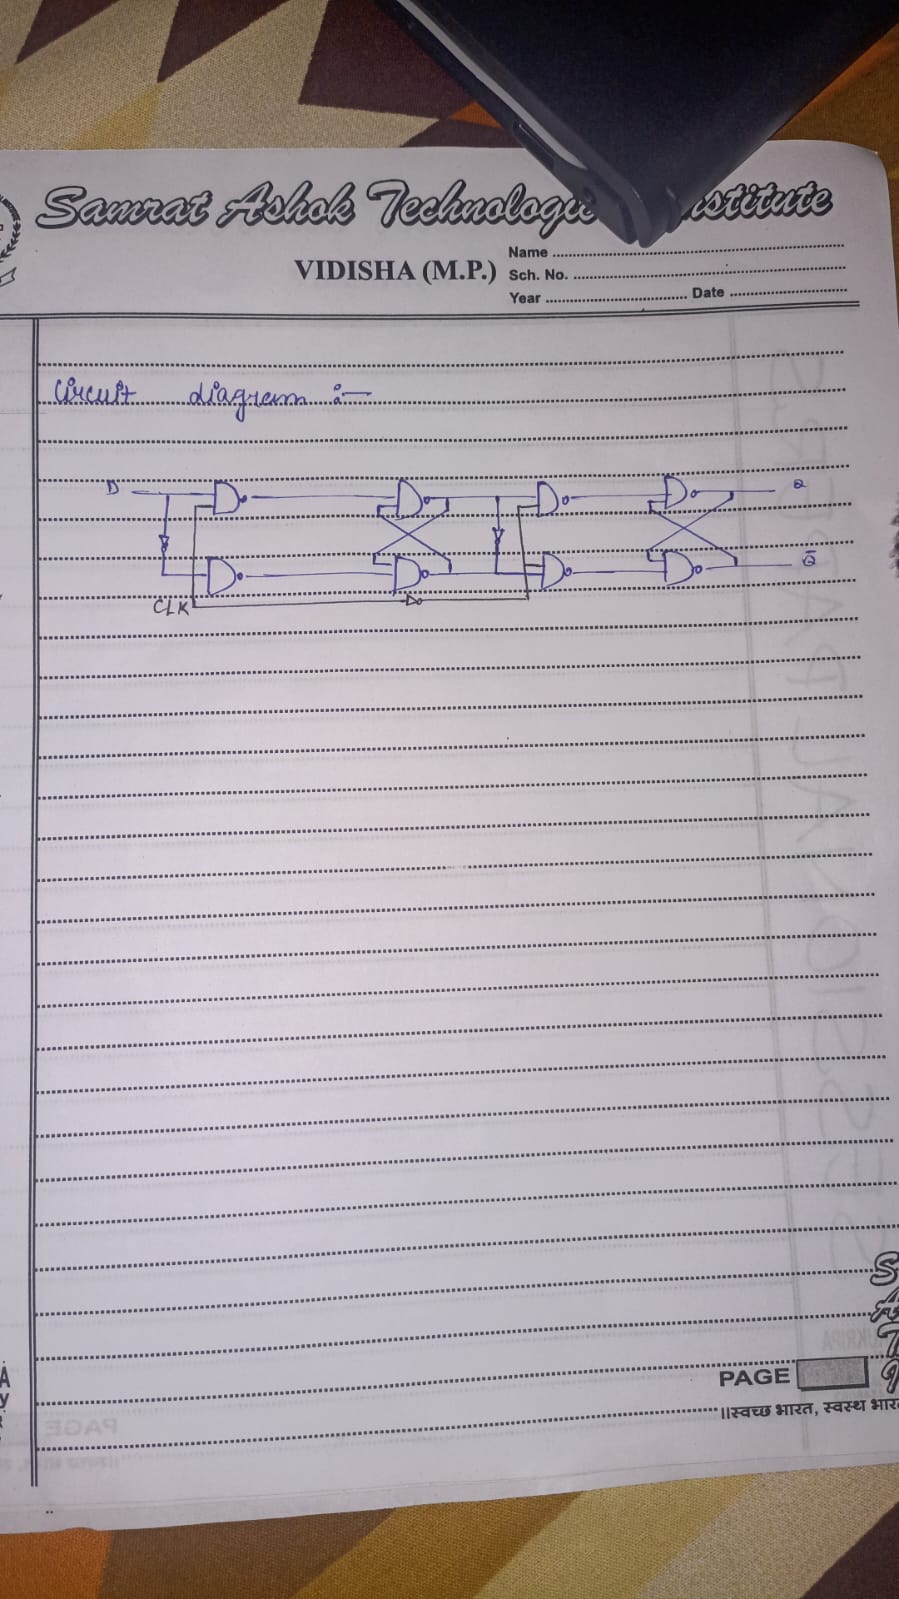 Samrat Ashok Technologic nstitute
VIDISHA (M.P.)
Name
Sch. No.
Year Date
Circuit diagram :-
D Q
Q̄
CLK
PAGE
॥स्वच्छ भारत, स्वस्थ भार